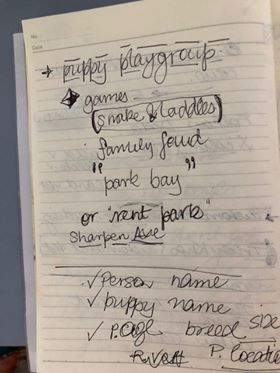 No.
Date
→ puppy playgroup.
games
(snake & ladders)
family feud
"park bay"
or "rent parks"
Sharpen Ave
✓ Person name
✓ puppy name
✓ P. age breed size
P. location